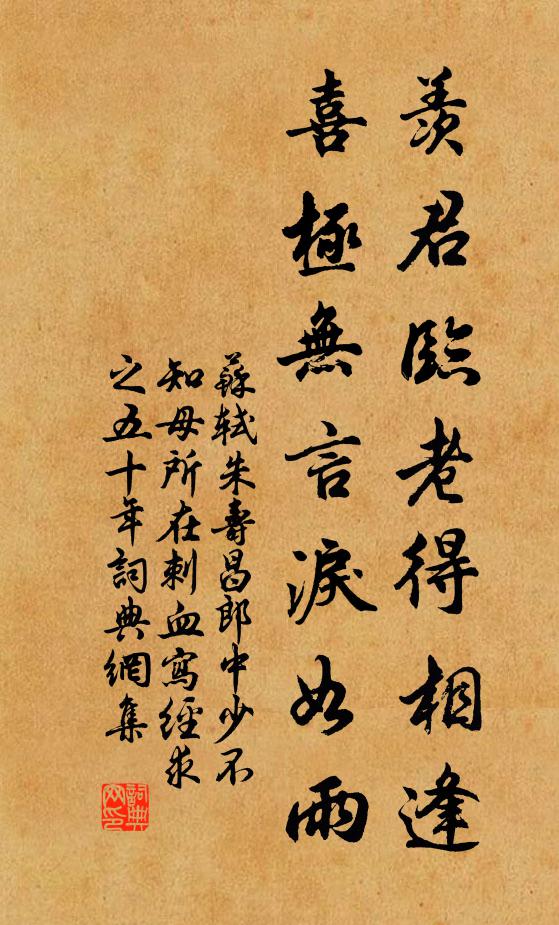 羨君臨老得相逢
喜極無言淚如雨
蘇軾朱壽昌郎中少不
知母所在刺血寫經求
之五十年詞典網集
詞典
网印